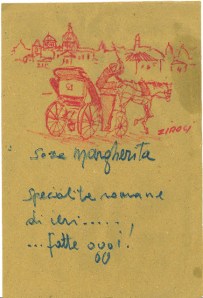 ZIROY
Sora Margherita
Specialità romane
di ieri.....
...fatte oggi!